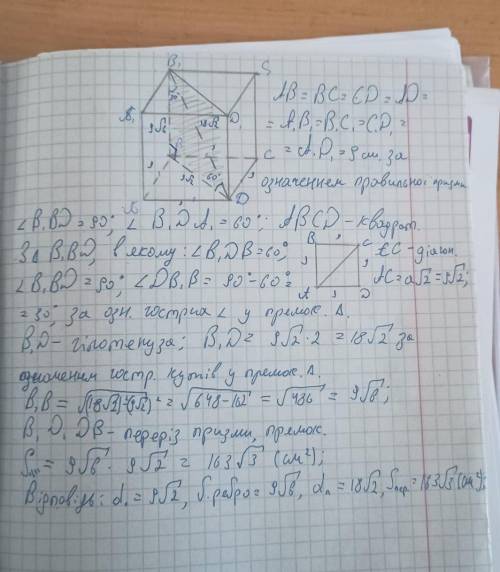 B₁ C₁
A₁ D₁
30°
9√6 18√2
B C
9√2 60°
A 9 D
AB = BC = CD = AD =
= A₁B₁ = B₁C₁ = C₁D₁ =
= A₁D₁ = 9 см, за
означенням правильної призми
∠B₁BD = 90°, ∠ B₁DA₁ = 60°; ABCD - квадрат.
З Δ B₁BD, в якому: ∠B₁DB = 60°,
∠B₁BD = 90°, ∠DB₁B = 90° - 60° =
= 30°, за озн. гострих ∠ у прямок. Δ.
B C
9 9
A 9 D
AC - діагон.
AC = a√2 = 9√2;
B₁D - гіпотенуза; B₁D = 9√2 · 2 = 18√2 за
означенням гостр. кутів у прямок. Δ.
B₁B = √(18√2)²-(9√2)² = √648-162 = √486 = 9√6;
B₁D₁DB - переріз призми, прямок.
Sпер = 9√6 · 9√2 = 163√3 (см²);
Відповідь: d₀ = 9√2, б.ребро = 9√6, dп = 18√2, Sпер. = 163√3 (см²);